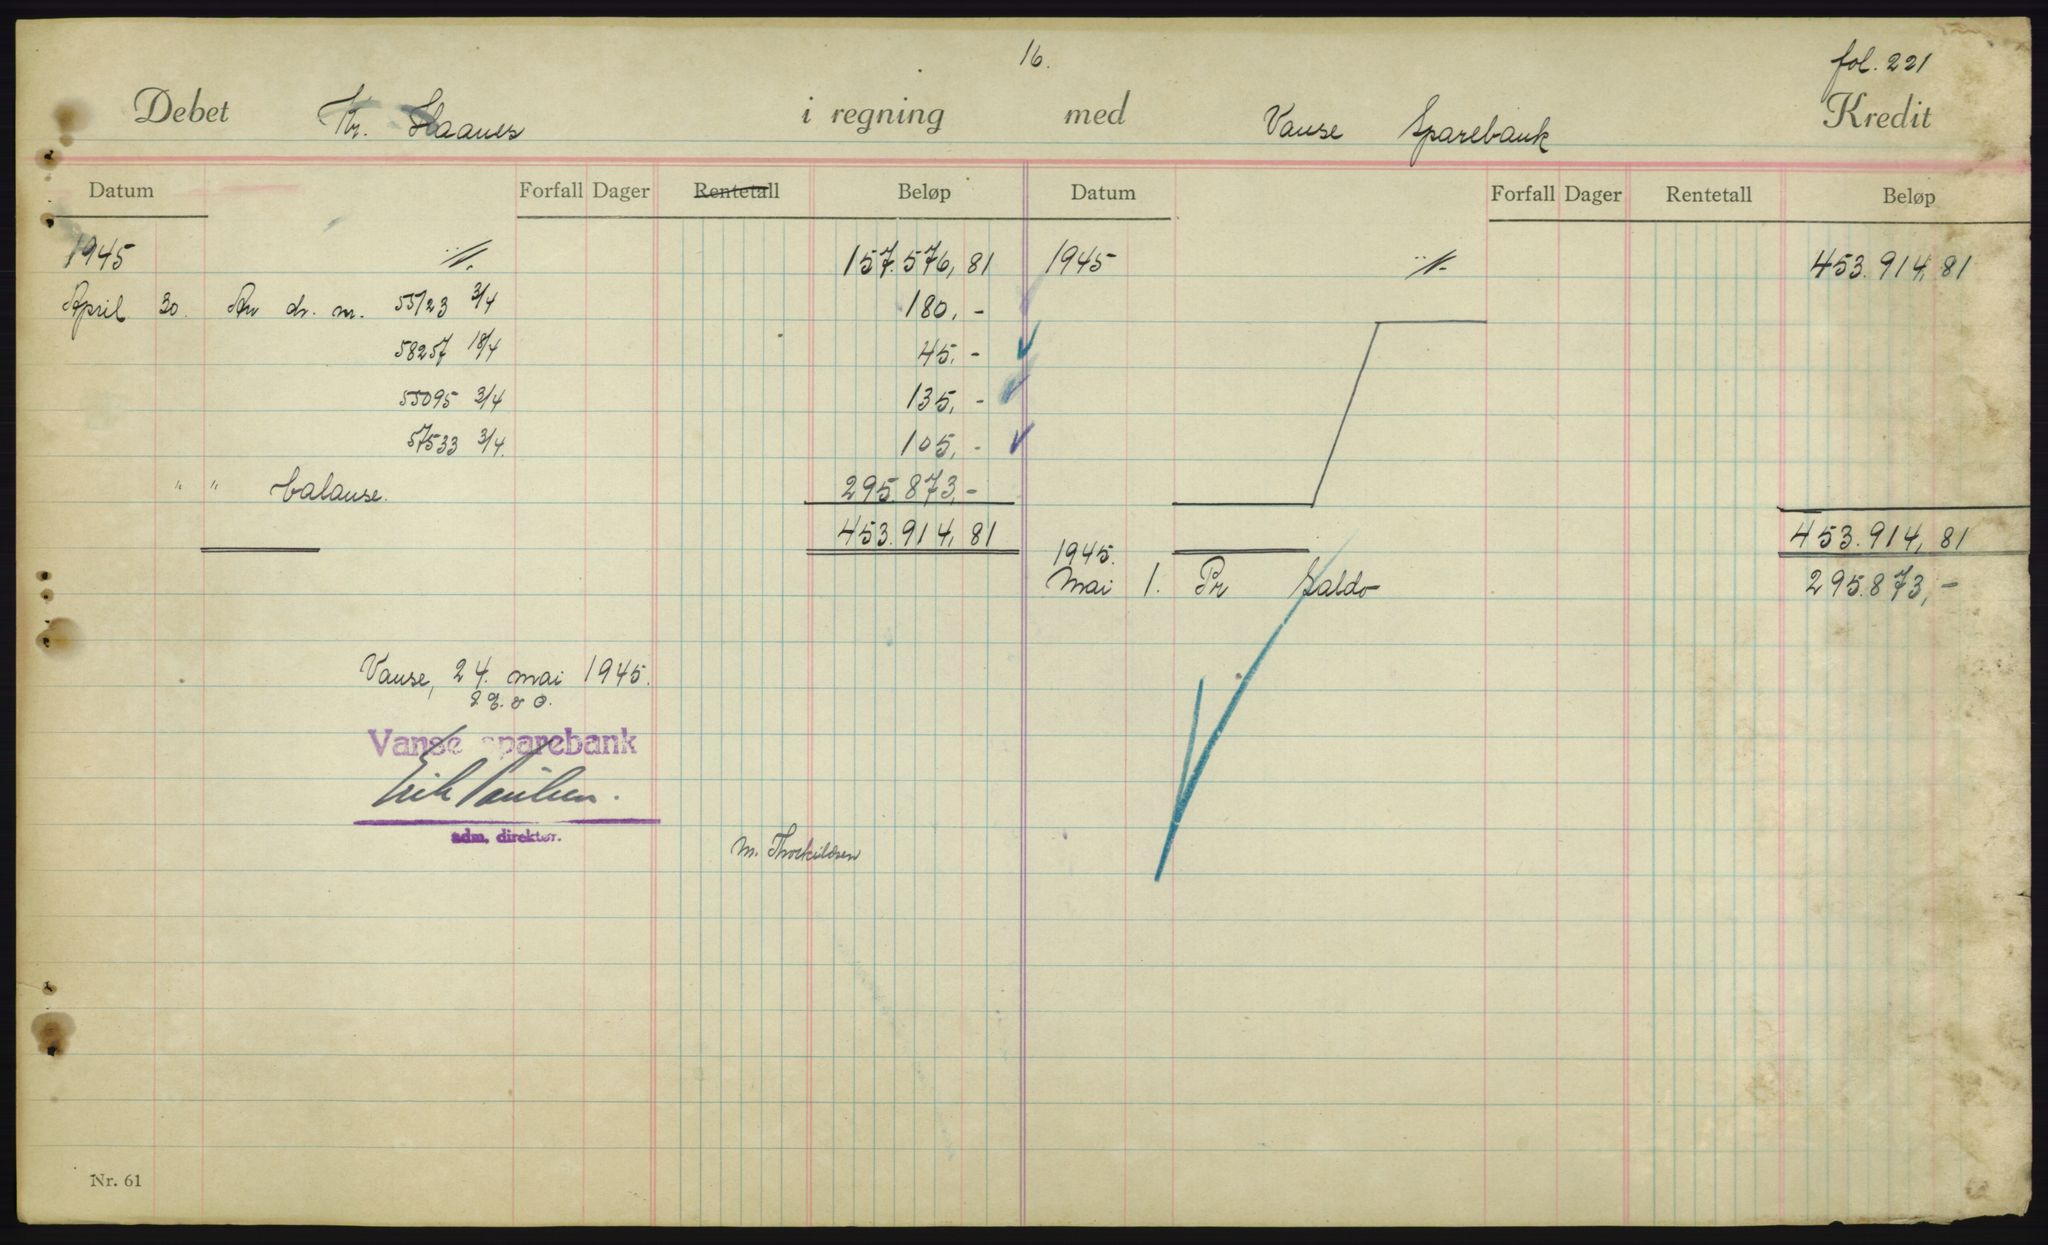 16.
fol. 221
Debet Kr. Haanes i regning med Vanse Sparebank Kredit
Datum Forfall Dager Rentetall Beløp Datum Forfall Dager Rentetall Beløp
1945 157.576,81 1945 453.914,81
April 30. An dr. nr. 55123 3/4 180,-
58257 18/4 45,-
55095 3/4 135,-
57533 3/4. 105,-
" " balanse. 295.873,-
453.914,81 453.914,81
1945.
Mai 1. Pr Saldo 295.873,-
Vanse, 24. mai 1945.
Vanse sparebank
Erik Paulsen.
adm. direktør.
M. Thorkildsen
Nr. 61